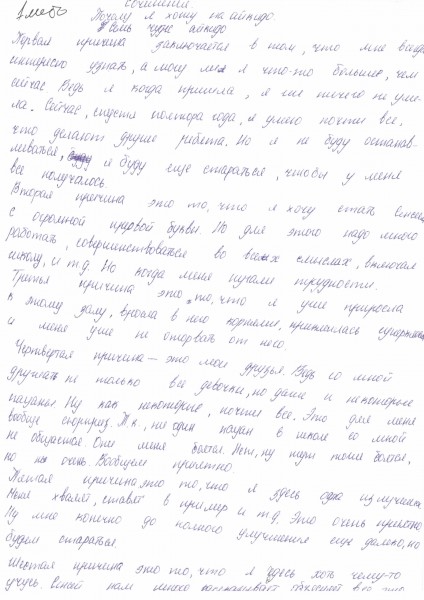 1 место
Сочинение.
Почему я хожу на айкидо.
чудес айкидо
Первая причина заключается в том, что мне всегда
интересно узнать, а могу ли я что-то большее, чем
сейчас Ведь я когда пришла, я не ничего не уме-
ла. Сейчас, спустя полтора года, я умею почти все,
что делают другие ребята. Но я не буду останав-
ливаться, я буду еще стараться, чтобы у меня
все получалось.
Вторая причина это то, что я хочу стать
с огромной первой буквы. Но для этого надо много
работать, совершенствоваться во всех смыслах, включая
школу, и т.д. Но когда меня пугали трудности.
Третья причина это то, что я уже приросла
к этому залу, вросла в него корнями,
и меня уже не оторвать от него.
Четвертая причина — это мои друзья. Ведь со мной
дружат не только все девочки, но даже и некоторые
пацаны Ну как некоторые, почти все. Это для меня
вообще сюрприз. Т.к. ни один пацан в школе со мной
не общается. Они меня боятся. Нет, ну тут тоже боятся,
но не очень. Вообщем приятно.
Пятая причина это то, что я здесь одна из лучших.
Меня хвалят, ставят в пример и т.д. Это очень приятно
Ну мне конечно до полного улучшения еще далеко, но
будем стараться.
Шестая причина это то, что я здесь хоть чему-то
учусь. нам много рассказывает объясняет все